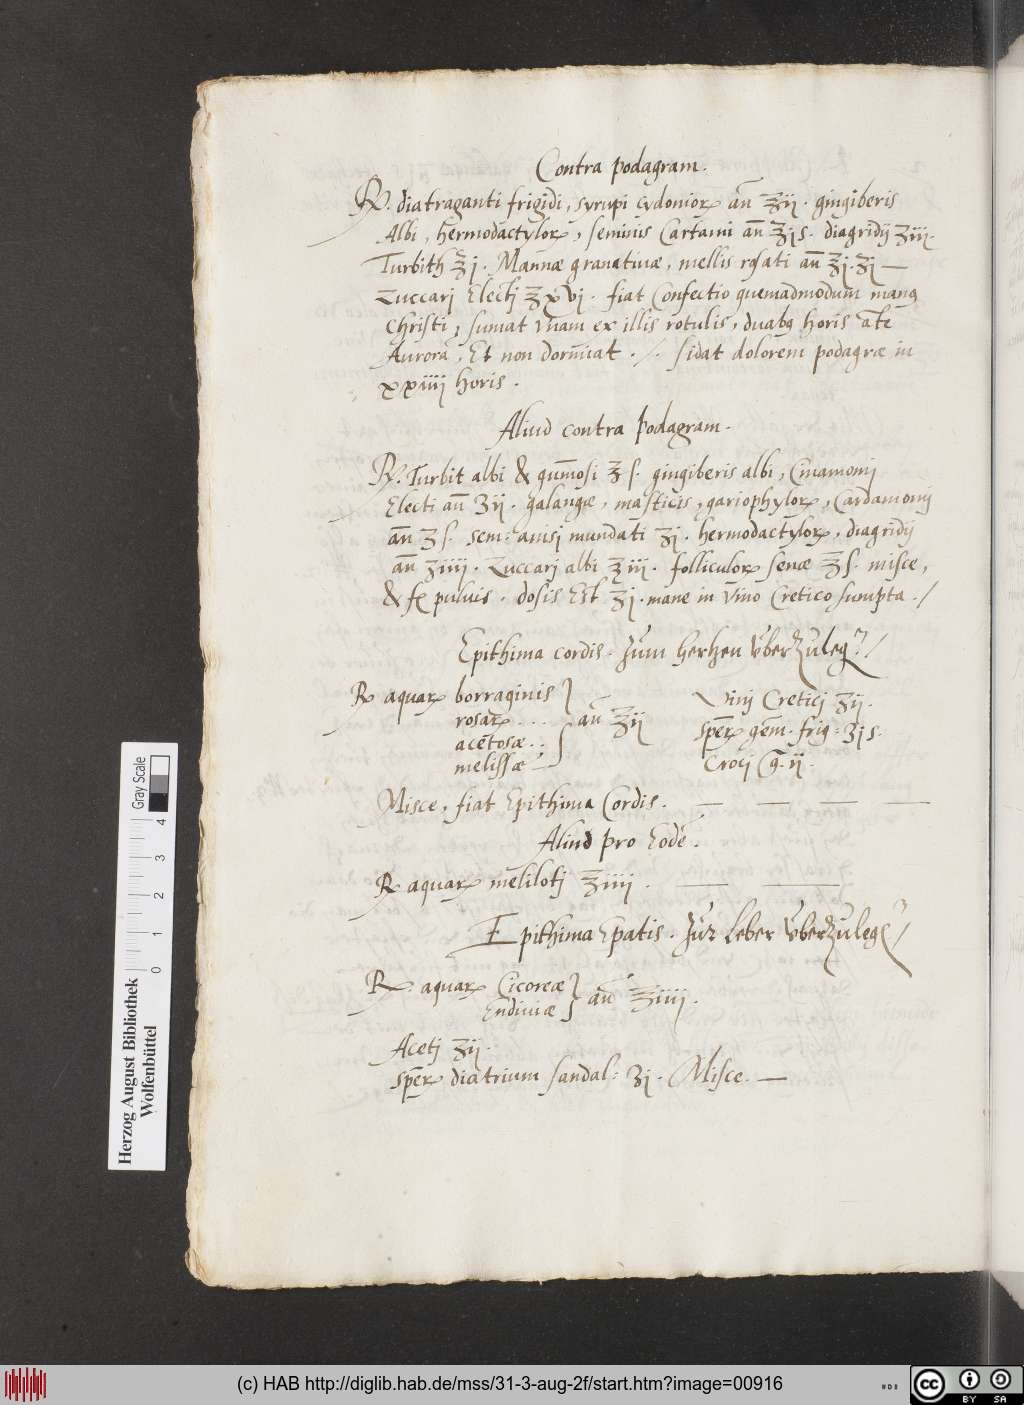 Contra podagram.
℞. diatraganti frigidi, syrupi cydonioꝝ an̄ ʒij. gingiberis
Albi, hermodactyloꝝ, seminis Cartami an̄ ʒjs. diagridij ʒiij.
Turbith ℥j. Mannæ granatinæ, mellis rosati an̄ ℥j. ʒj —
Zuccarj Electj ℥xvj. fiat Confectio quemadmodum manꝰ
Christi, sumat vnam ex illis rotulis, duabꝫ horis āte
Aurorā, Et non dormiat. /. sidat dolorem podagræ in
xxiiij horis.
Aliud contra podagram.
℞. Turbit albi & gum̄osi ℥ſ. gingiberis albi, Cinamomj
Electi an̄ ʒij. galangæ, masticis, gariophyloꝝ, Cardamomj
an̄ ʒſ. sem: anisj mundati ʒj. hermodactyloꝝ, diagridij
an̄ ʒiiij. Zuccarj albi ʒiij. folliculoꝝ senæ ℥ſ. misce,
& f puluis. dosis Est ʒj. mane in Vino Cretico sumpta. /
Epithima cordis. Zum hertzen vberzuleg /
℞ aquaꝝ borraginis
rosaꝝ . . . an̄ ℥ij
acetosæ . :
melissæ —
Vinj Creticj ℥ij.
sp̄eꝝ gem. frig: ʒjs.
Crocj Gͣ. ij.
Misce, fiat Epithima Cordis. — — — —
Aliud pro Eodē.
℞ aquaꝝ melilotj ℥iiij. — —
Epithima Epatis. Zur Leber vberzuleg /
℞. aquaꝝ Cicoreæ
Endiuiæ an̄ ℥iiij.
Acetj ℥ij.
sp̄eꝝ diatrium sandal: ʒj. Misce. —
Gray Scale
0 1 2 3 4
Herzog August Bibliothek
Wolfenbüttel
(c) HAB http://diglib.hab.de/mss/31-3-aug-2f/start.htm?image=00916
cc BY SA